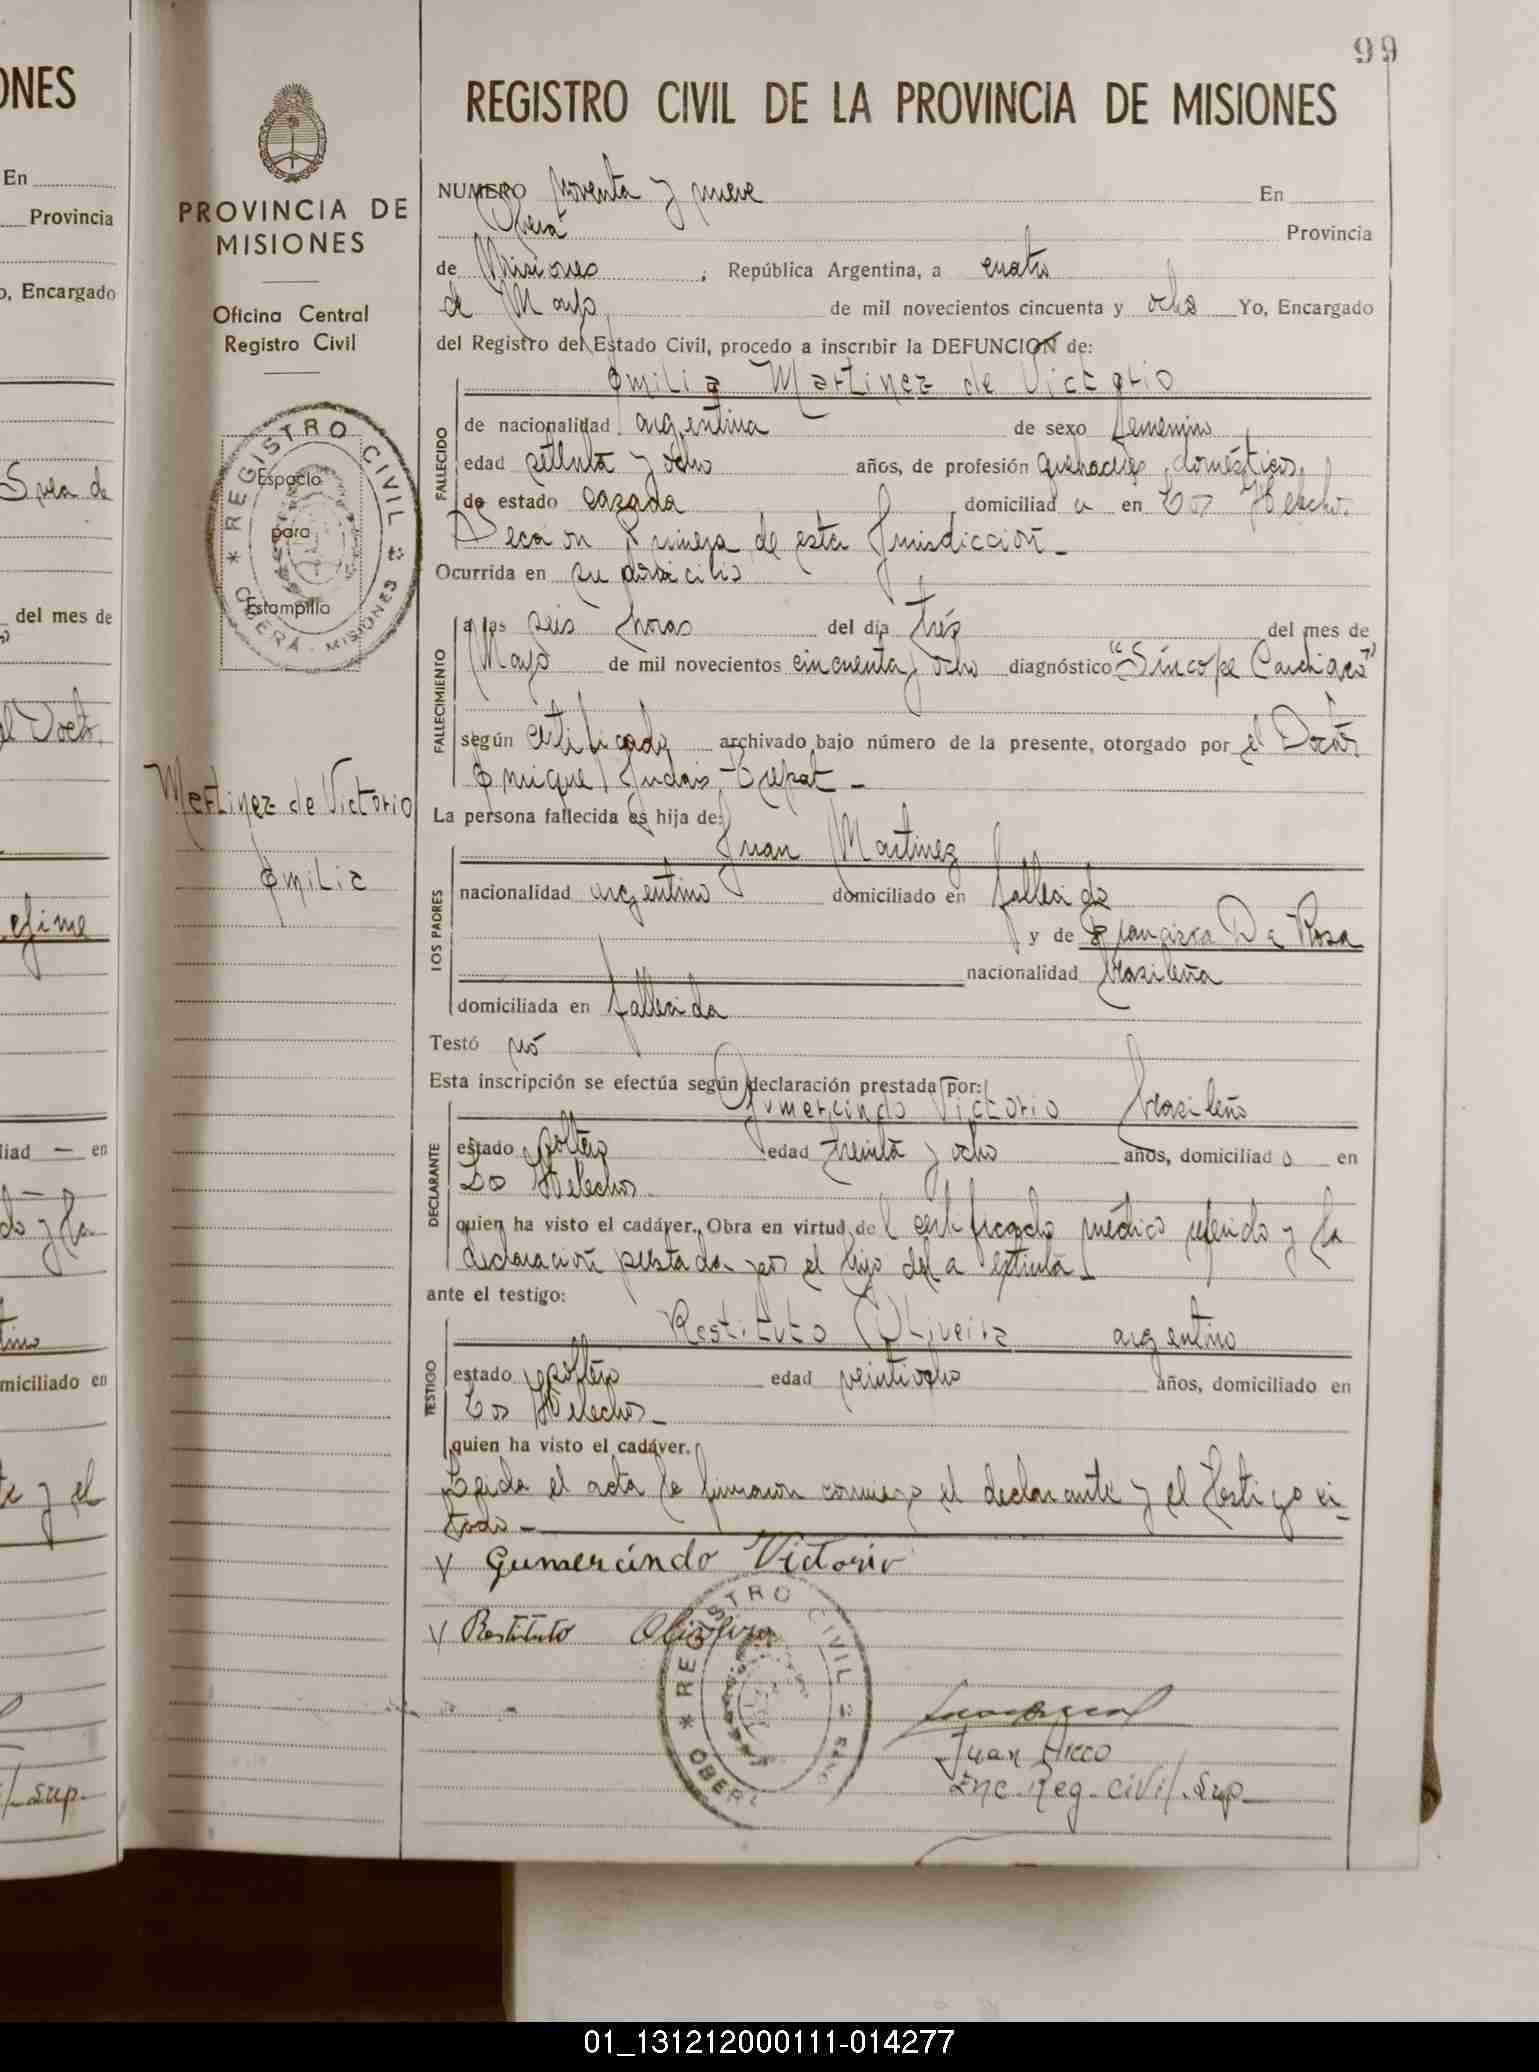 99
ONES
En
Provincia
o, Encargado
del mes de
al Doct.
efime
liad — en
do y la
tino
miciliado en
y el
Sup.
PROVINCIA DE
MISIONES
Oficina Central
Registro Civil
REGISTRO CIVIL
OBERÁ - MISIONES
Espacio
para
Estampilla
Martinez de Victorio
Emilia
REGISTRO CIVIL DE LA PROVINCIA DE MISIONES
NUMERO Noventa y nueve En
Oberá Provincia
de Misiones , República Argentina, a cuatro
de Mayo de mil novecientos cincuenta y ocho Yo, Encargado
del Registro del Estado Civil, procedo a inscribir la DEFUNCION de:
Emilia Martinez de Victorio
FALLECIDO
de nacionalidad argentina de sexo femenino
edad setenta y ocho años, de profesión quehaceres domésticos,
de estado casada domiciliad a en Los Helechos
Sección Primera de esta Jurisdicción -
Ocurrida en su domicilio
FALLECIMIENTO
a las seis horas del día tres del mes de
Mayo de mil novecientos cincuenta y ocho diagnóstico "Síncope Cardiaco"
según certificado archivado bajo número de la presente, otorgado por el Doctor
Enrique Crepat -
La persona fallecida es hija de:
Juan Martinez
LOS PADRES
nacionalidad argentino domiciliado en fallecido
y de Francisca Da Rosa
nacionalidad brasileña
domiciliada en fallecida
Testó nó
Esta inscripción se efectúa según declaración prestada por:
Gumercindo Victorio brasileño
DECLARANTE
estado soltero edad treinta y ocho años, domiciliad o en
Los Helechos
quien ha visto el cadáver. Obra en virtud de l certificado médico referido y la
declaración prestada por el hijo de la extinta -
ante el testigo:
Restituto Oliveira argentino
TESTIGO
estado soltero edad veintiocho años, domiciliado en
Los Helechos -
quien ha visto el cadáver.
Leida el acta la firmaron conmigo el declarante y el testigo ci-
tado -
Gumercindo Victorio
Restituto Oliveira
REGISTRO CIVIL
OBERA
Juan Ricco
Enc. Reg. Civil. Sup.
01_131212000111-014277